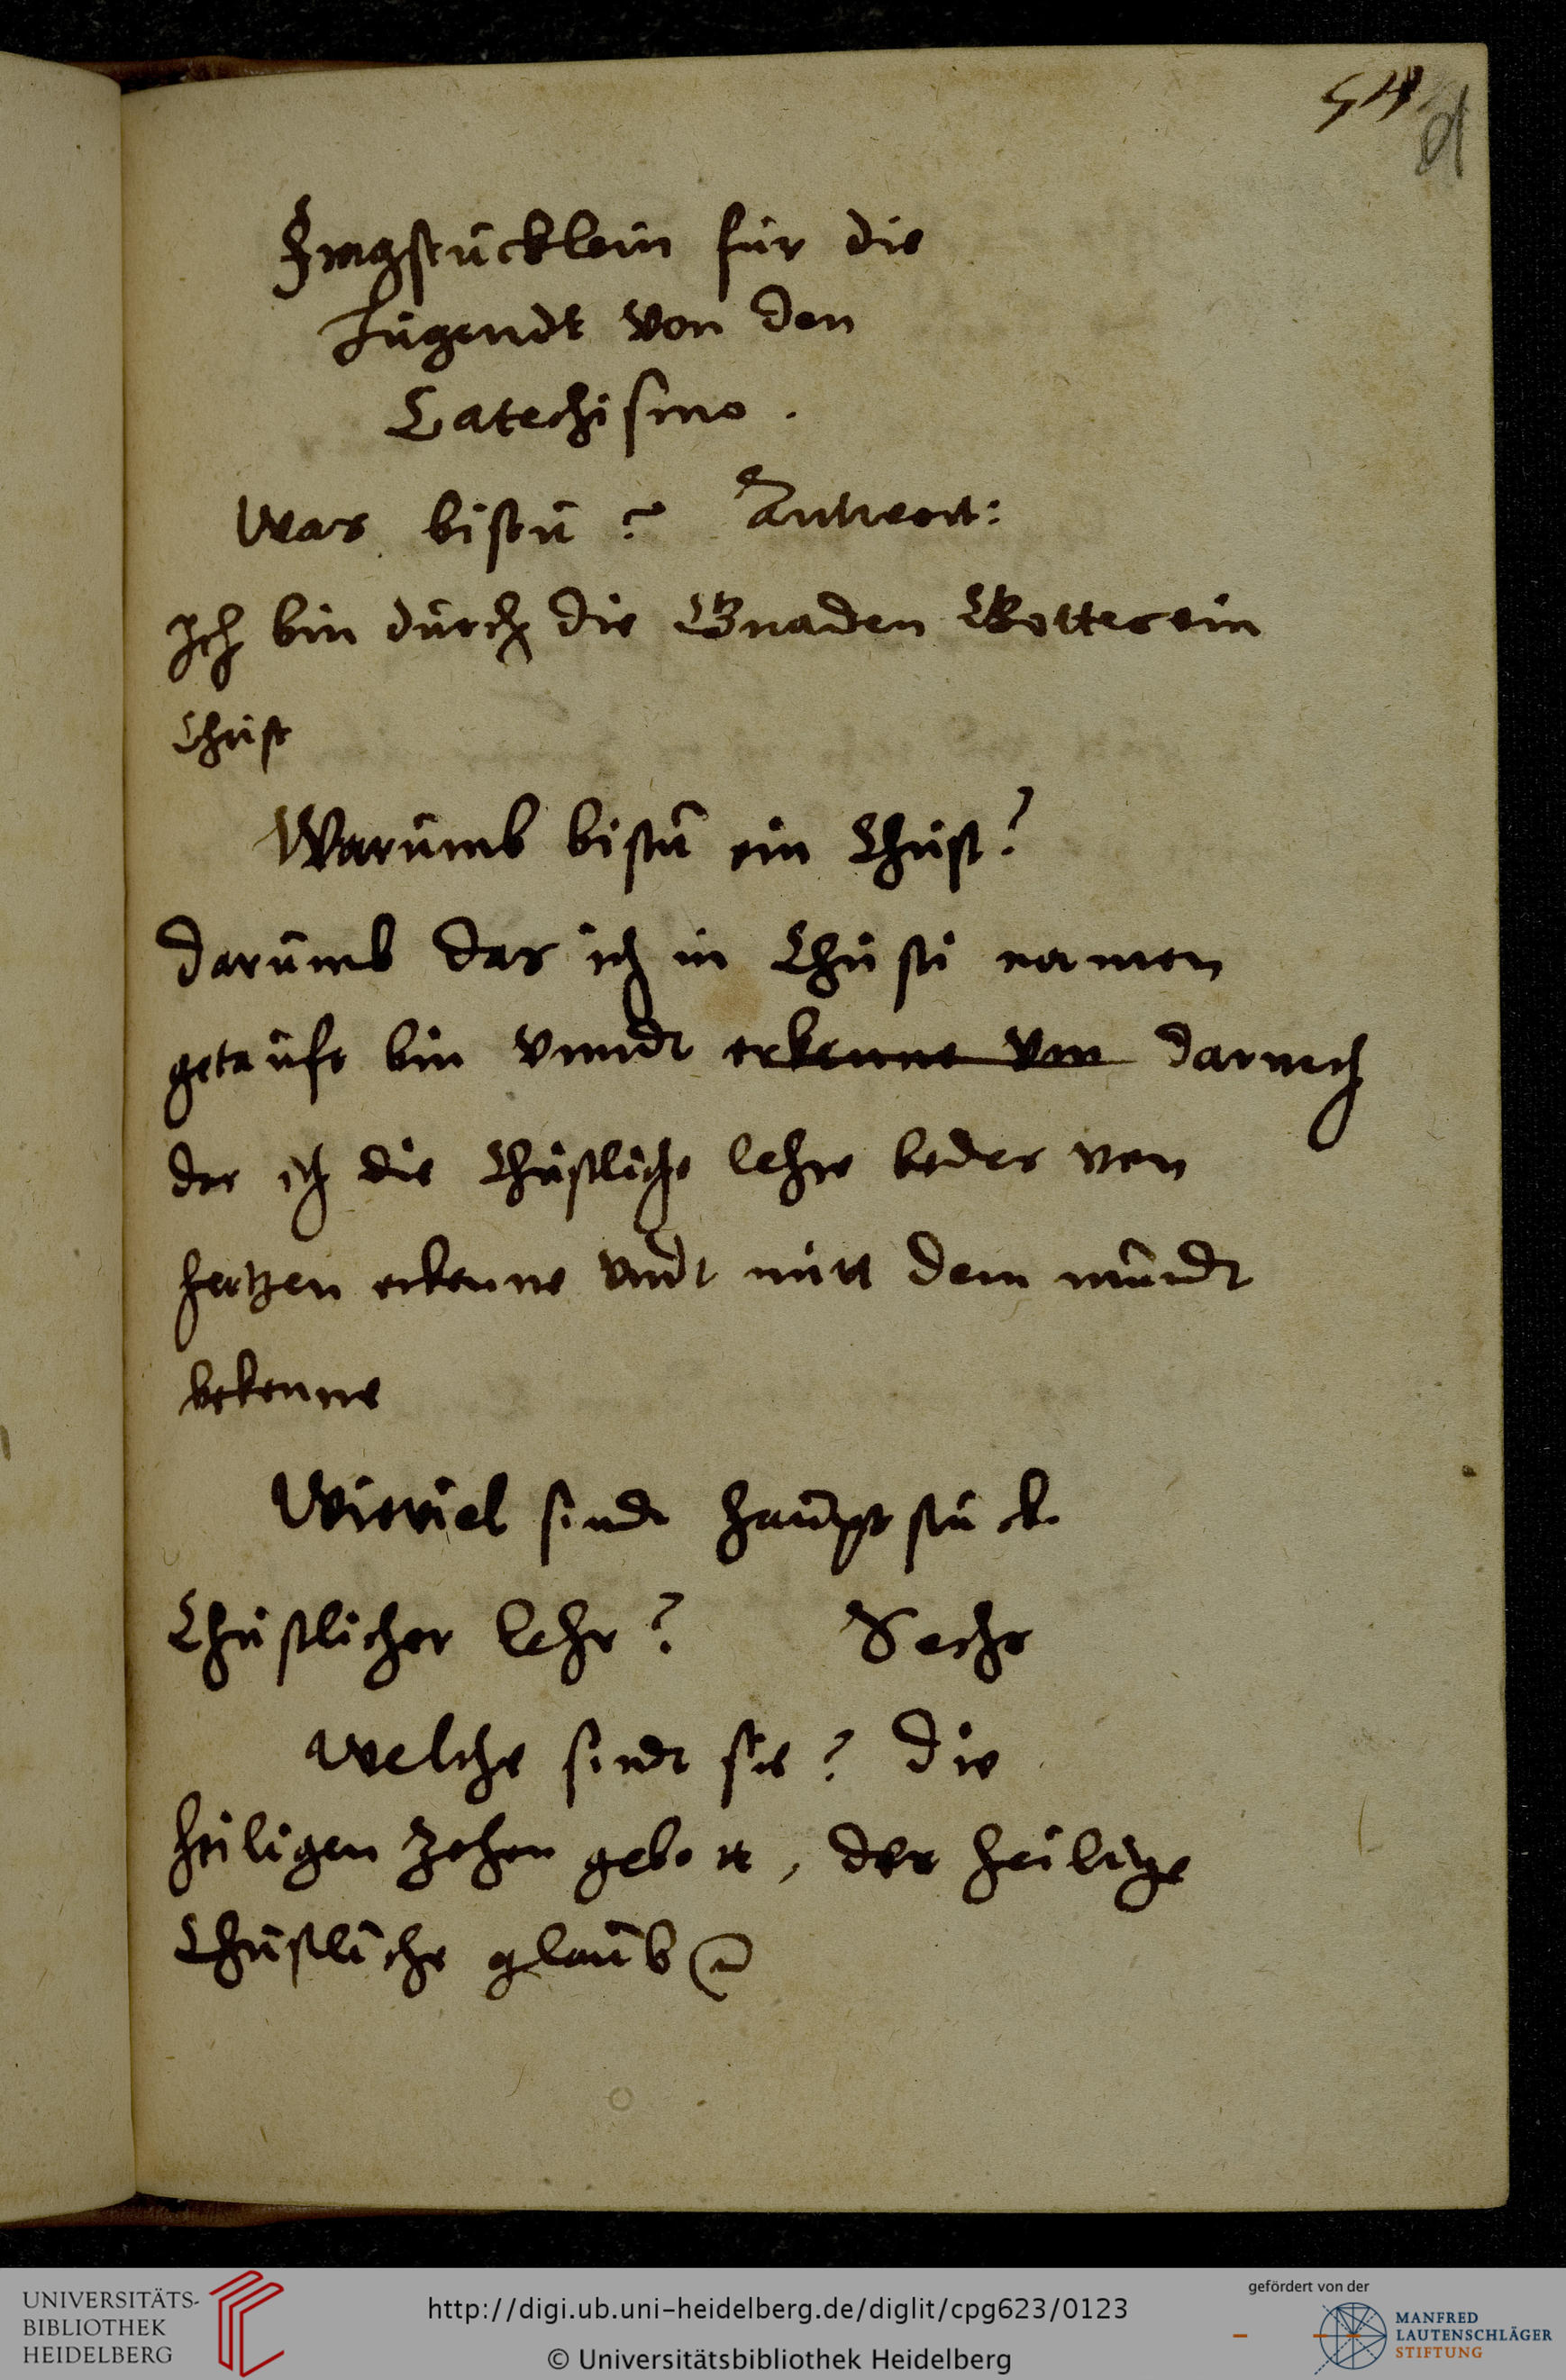 54
Fragstucklein für die
Jugendt von den
Catechismo.
Was bistu? Antwort:
Ich bin durch die Gnaden Gottes ein
Christ
Warumb bistu ein Christ?
darumb das ich in Christi namen
getauft bin vnndt erkenne von darnach
das ich die Christliche lehre bedes von
hertzen erkenne vndt mitt dem mundt
bekenne
Wieviel sindt hauptstuck
Christlicher lehr? Sechs
welche sindt sie? Die
heiligen zehen gebott, der heilige
Christliche glaub
UNIVERSITÄTS-
BIBLIOTHEK
HEIDELBERG
http://digi.ub.uni-heidelberg.de/diglit/cpg623/0123
© Universitätsbibliothek Heidelberg
gefördert von der
MANFRED
LAUTENSCHLÄGER
STIFTUNG